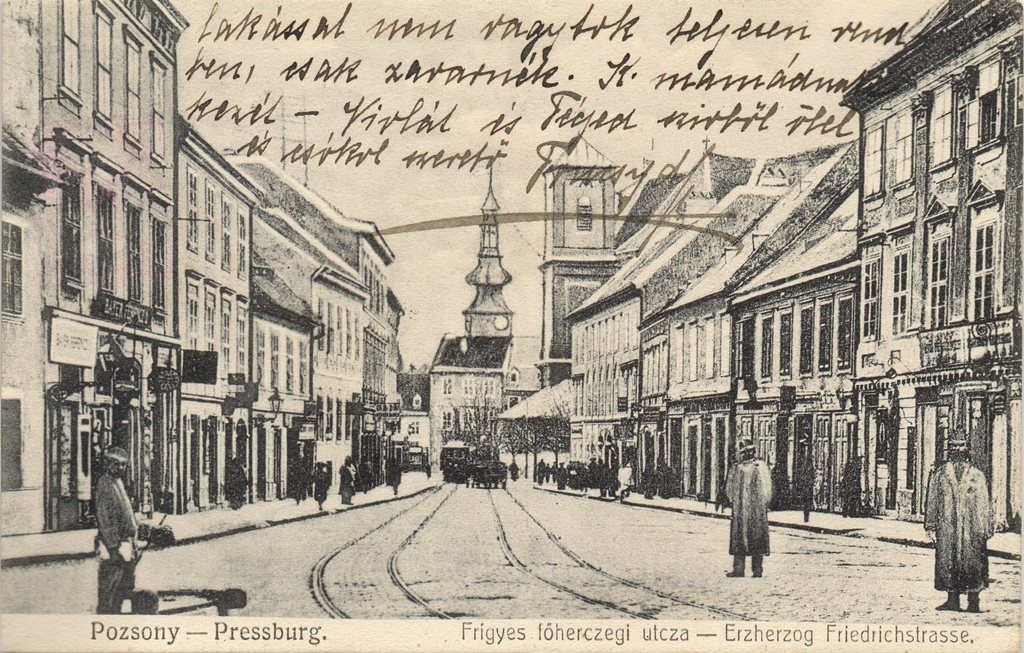 lakással nem vagytok teljesen rend
ben, csak zavarnék. K. mamádnak
kezét – Violát is Téged szívből ölel
és csókol szerető
Pozsony — Pressburg.
Frigyes főherczegi utcza — Erzherzog Friedrichstrasse.